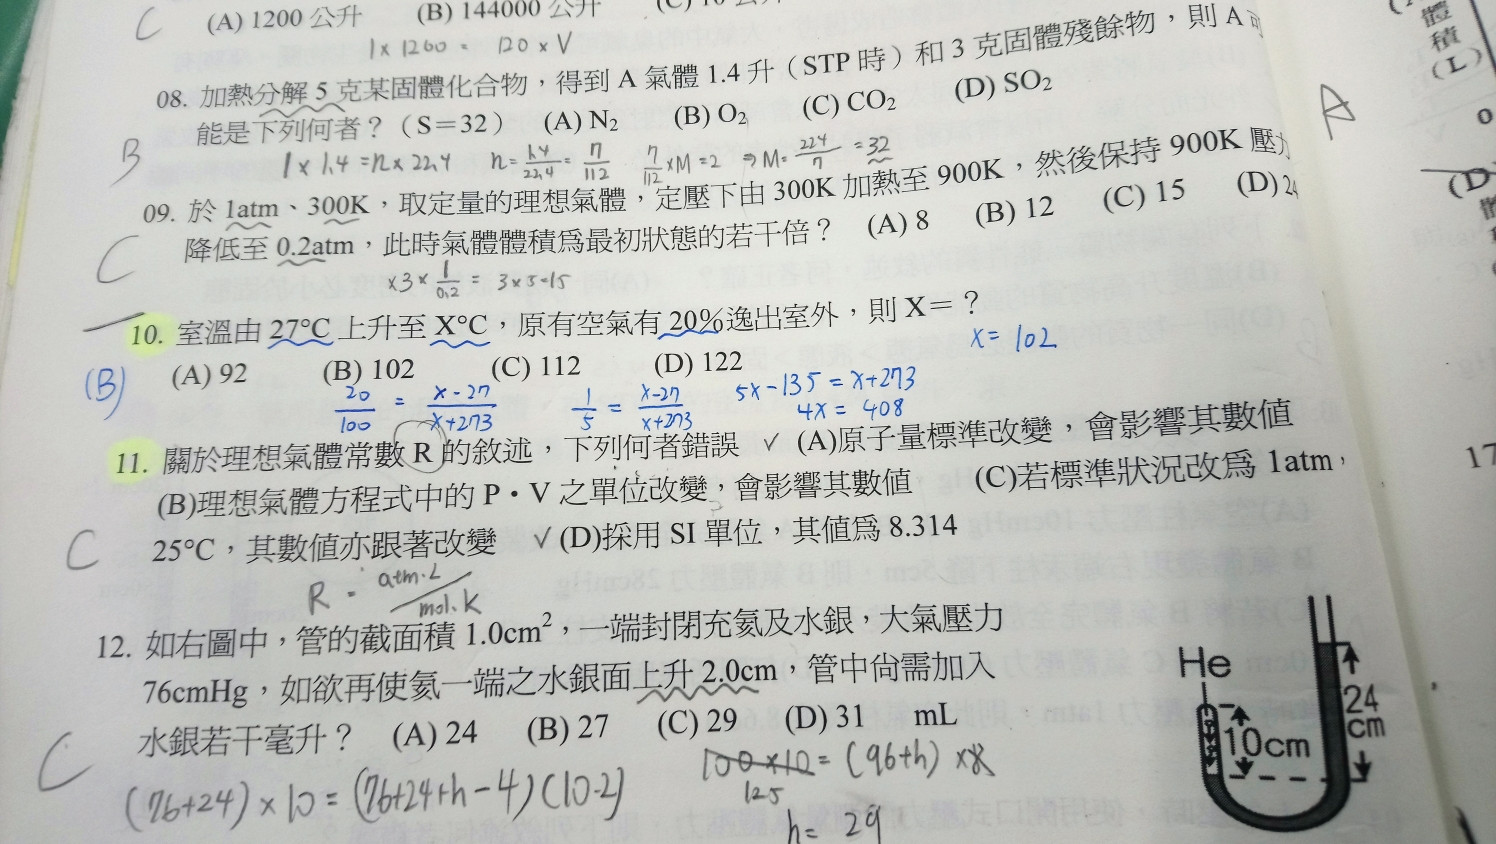 C (A) 1200 公升 (B) 144000 公升
1 x 1200 = 120 x V
08. 加熱分解 5 克某固體化合物，得到 A 氣體 1.4 升（STP 時）和 3 克固體殘餘物，則 A 可
能是下列何者？（S＝32） (A) N2 (B) O2 (C) CO2 (D) SO2
B 1 x 1.4 = n x 22.4 n = 1.4/22.4 = 7/112 7/112 x M = 2 ⇒ M = 224/7 = 32
09. 於 1atm、300K，取定量的理想氣體，定壓下由 300K 加熱至 900K，然後保持 900K 壓力
降低至 0.2atm，此時氣體體積為最初狀態的若干倍？ (A) 8 (B) 12 (C) 15 (D)
C x3 x 1/0.2 = 3 x 5 = 15
10. 室溫由 27°C 上升至 X°C，原有空氣有 20%逸出室外，則 X＝？
x = 102
(B) (A) 92 (B) 102 (C) 112 (D) 122
20/100 = x-27/x+273 1/5 = x-27/x+273 5x-135 = x+273
4x = 408
11. 關於理想氣體常數 R 的敘述，下列何者錯誤 ✓ (A)原子量標準改變，會影響其數值
(B)理想氣體方程式中的 P·V 之單位改變，會影響其數值 (C)若標準狀況改為 1atm，
C 25°C，其數值亦跟著改變 ✓ (D)採用 SI 單位，其值為 8.314
R = atm·L/mol·K
12. 如右圖中，管的截面積 1.0cm²，一端封閉充氦及水銀，大氣壓力
76cmHg，如欲再使氦一端之水銀面上升 2.0cm，管中尙需加入
水銀若干毫升？ (A) 24 (B) 27 (C) 29 (D) 31 mL
C (76+24) x 10 = (76+24+h-4)(10-2) 100 x 10 = (96+h) x 8
125
h = 29
He
24
cm
10cm
A
體
積
(L)
0
(D)
體
17